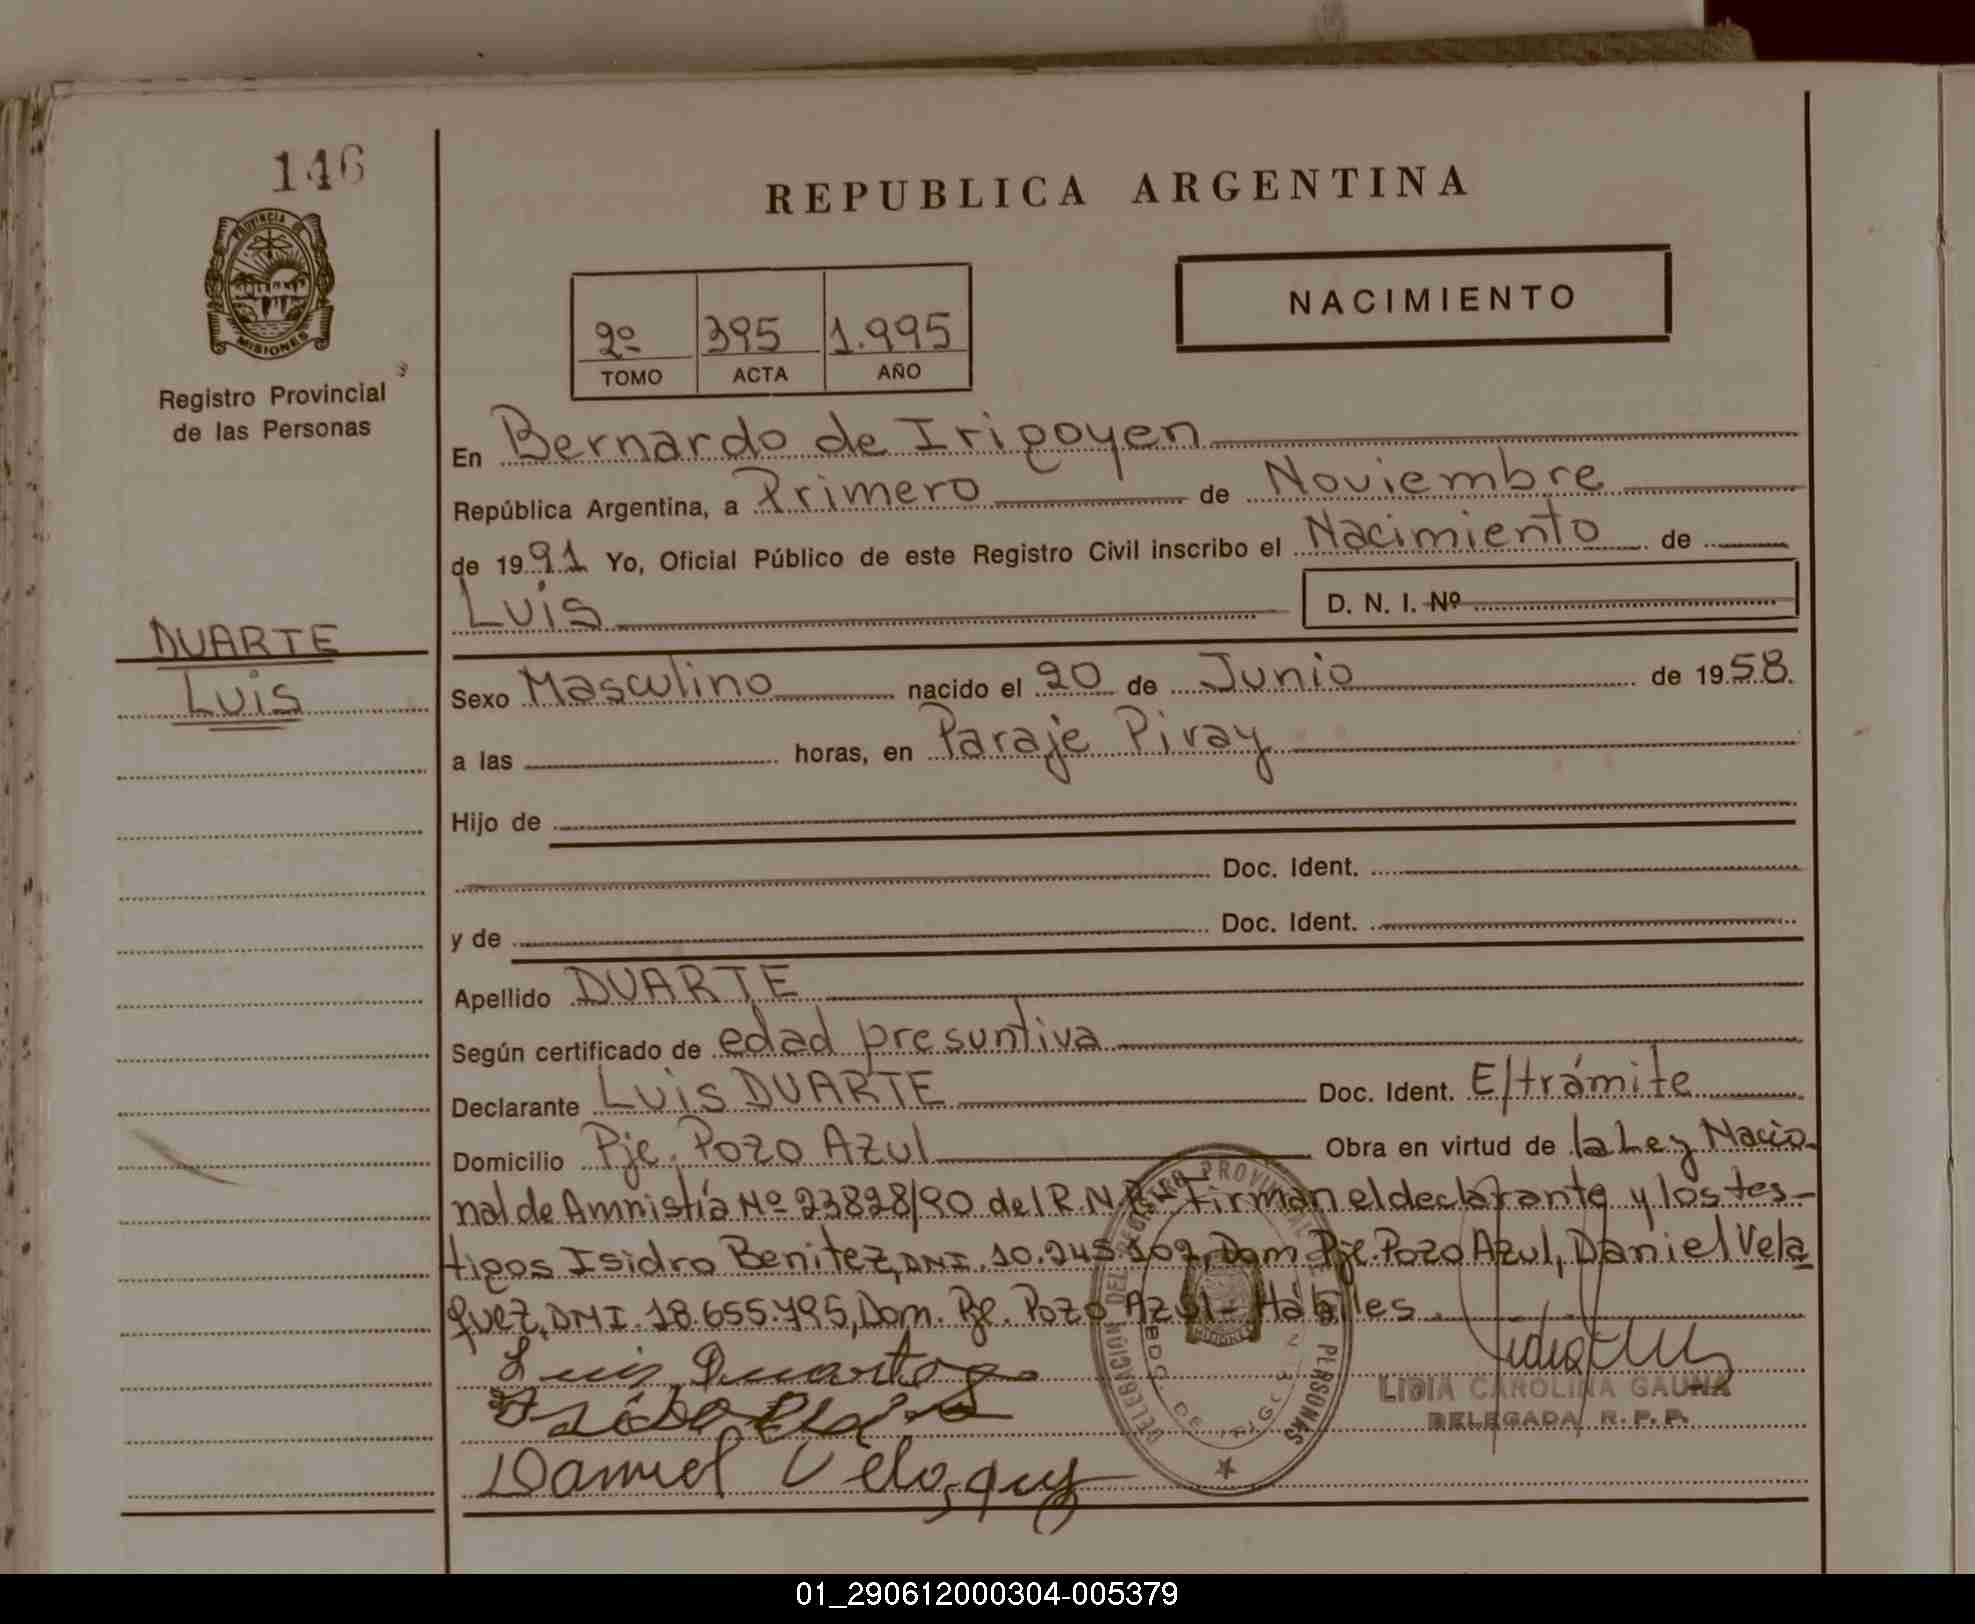 146
PROVINCIA DE
MISIONES
Registro Provincial
de las Personas
REPUBLICA ARGENTINA
NACIMIENTO
2º 395 1.995
TOMO ACTA AÑO
En Bernardo de Irigoyen
República Argentina, a Primero de Noviembre
de 1991 Yo, Oficial Público de este Registro Civil inscribo el Nacimiento de
Luis D. N. I. Nº
DUARTE
Luis
Sexo Masculino nacido el 20 de Junio de 1958.
a las horas, en Paraje Piray
Hijo de
Doc. Ident.
y de Doc. Ident.
Apellido DUARTE
Según certificado de edad presuntiva
Declarante Luis DUARTE Doc. Ident. E/trámite
Domicilio Pje. Pozo Azul Obra en virtud de la Ley Nacio-
nal de Amnistía Nº 23828/90 del R.N.P.- Firman el declarante y los tes-
tigos Isidro Benitez, DNI. 10.245.102, Dom. Pje. Pozo Azul, Daniel Vela
quez, DNI. 18.655.795, Dom. Pje. Pozo Azul - Hábiles.
Luis Duarte
Daniel Velasquez
DELEGACION DEL REGISTRO PROVINCIAL DE PERSONAS
BDO. DE IRIGOYEN
MISIONES
LIDIA CAROLINA GAUNA
DELEGADA R. P. P.
01_290612000304-005379